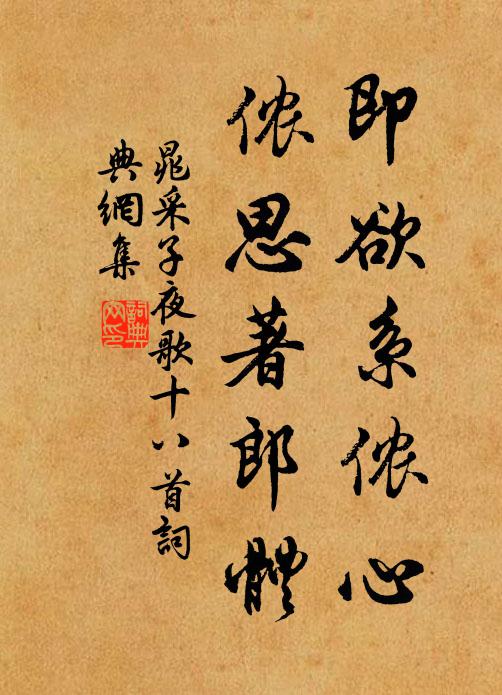 即欲系侬心
侬思著郎體
晁采子夜歌十八首詞
典網集
詞典
网印